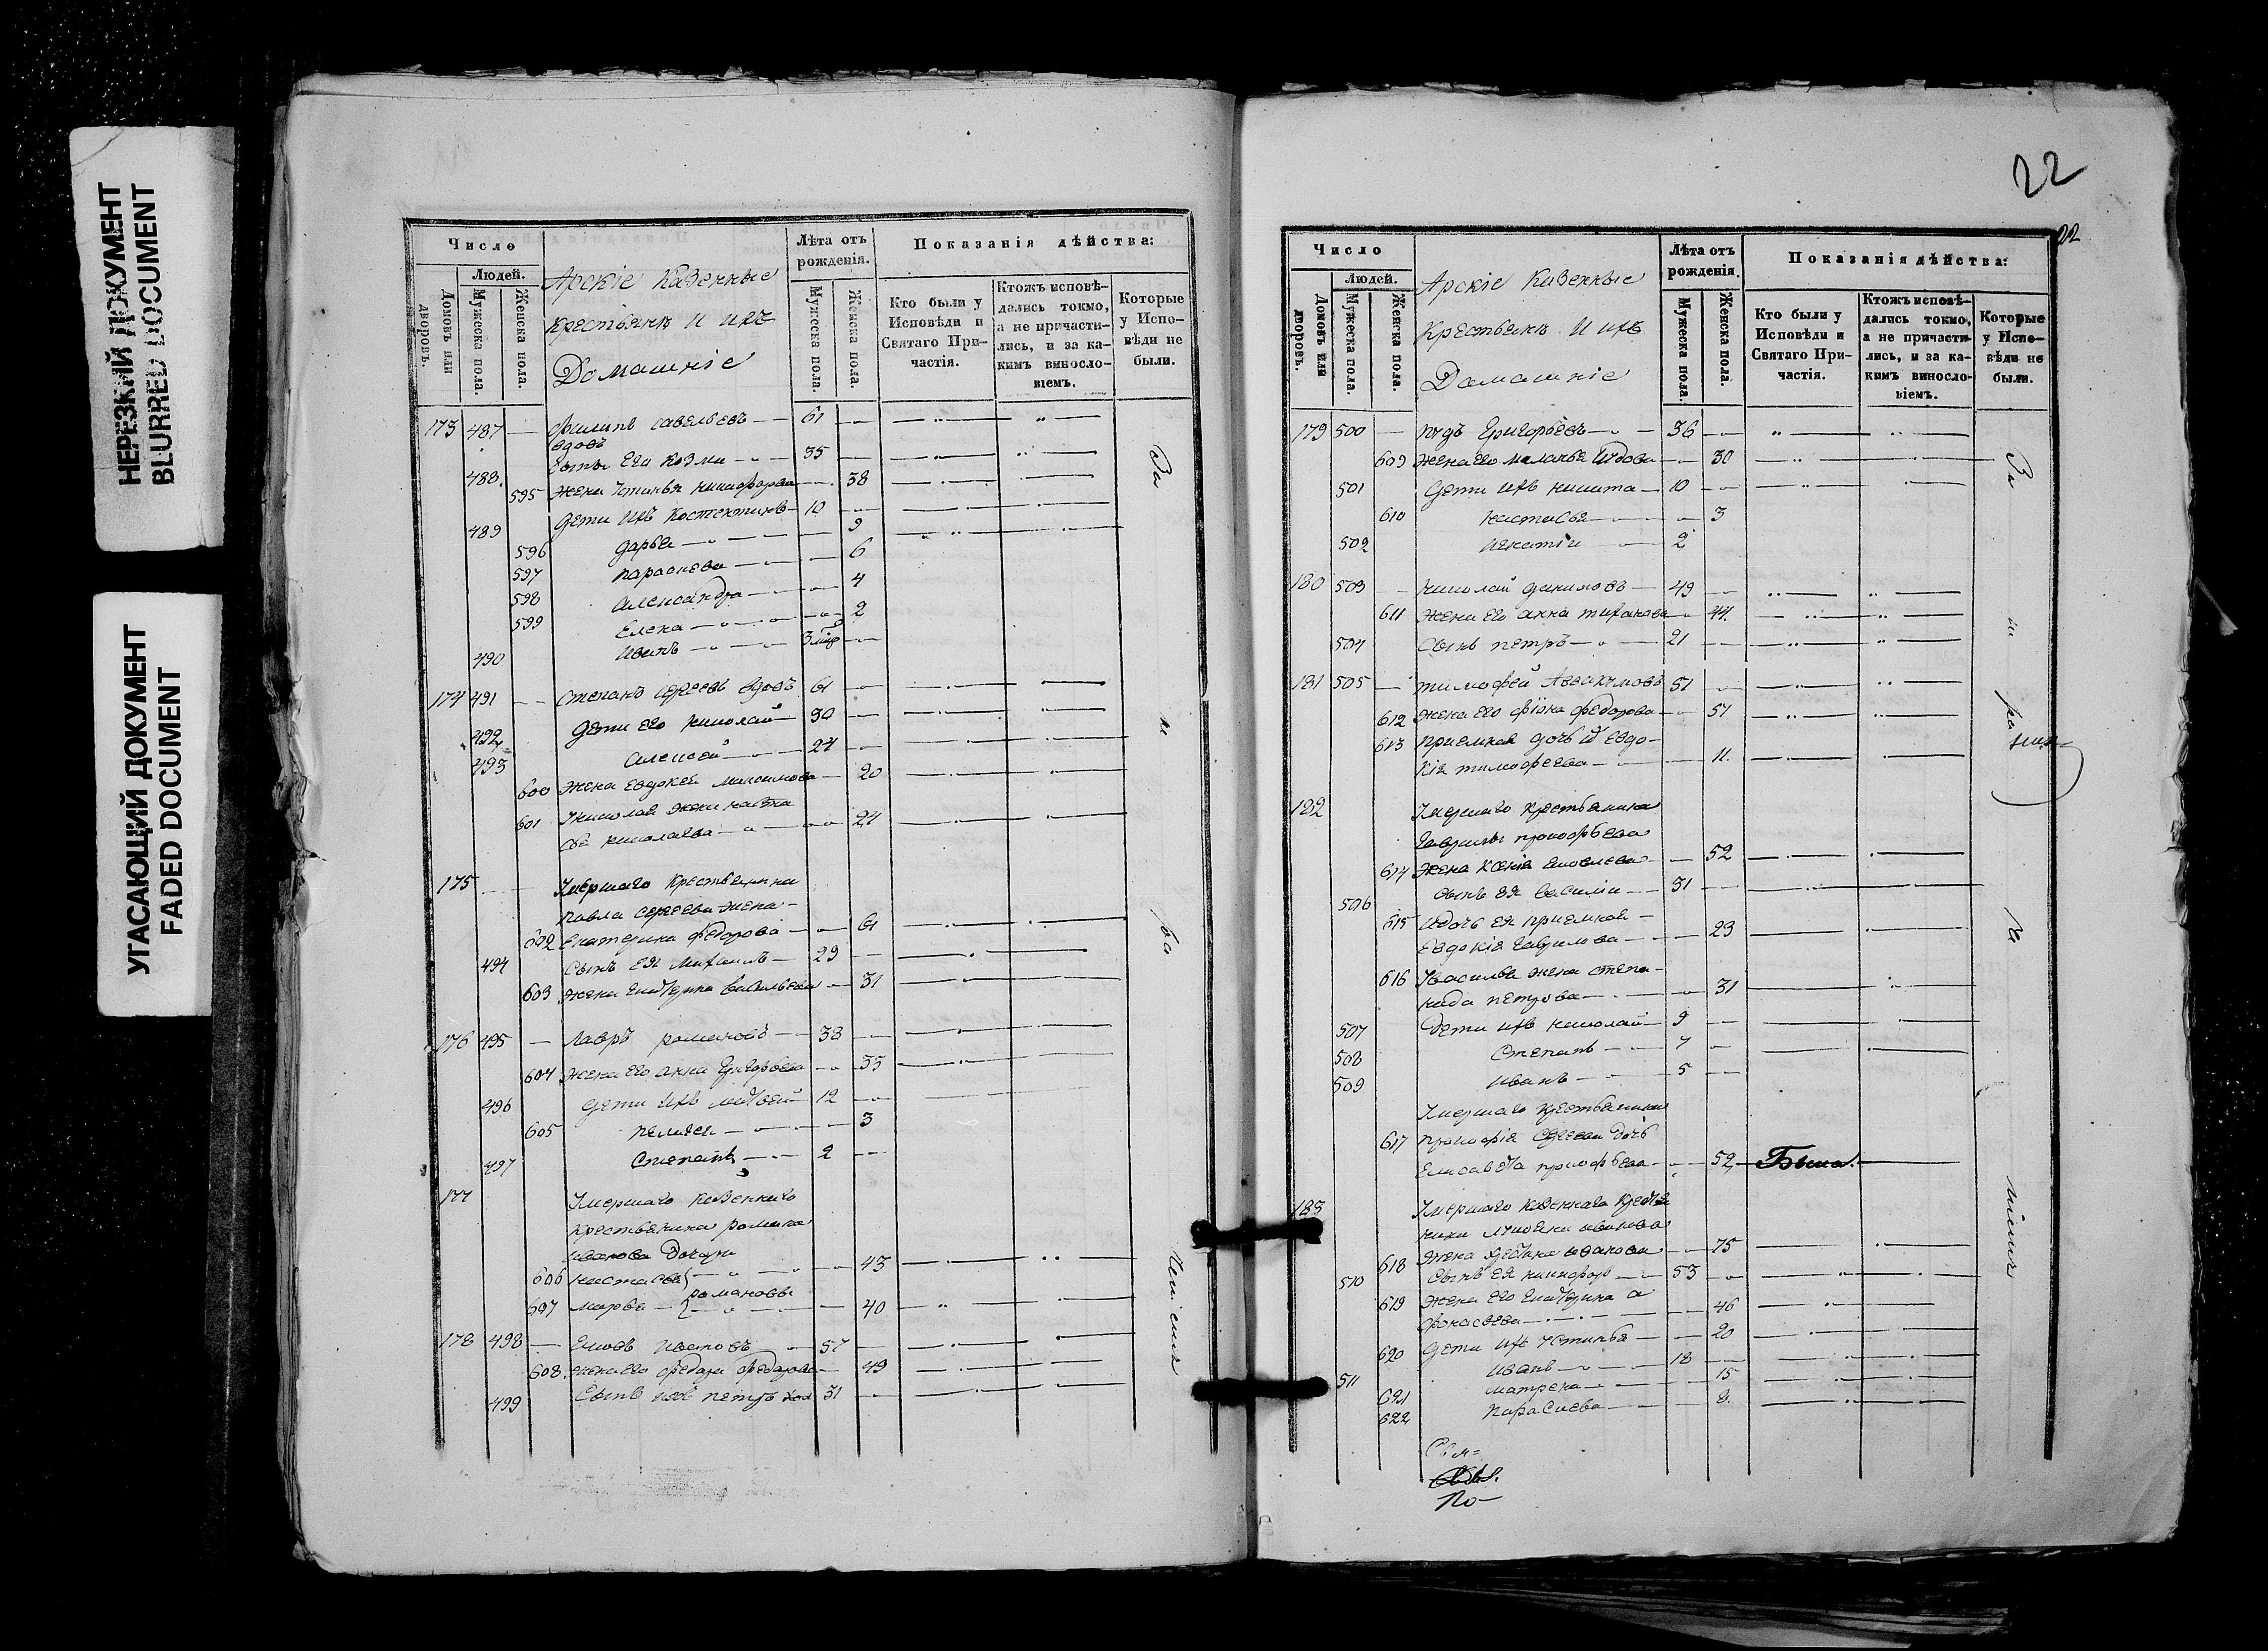 НЕРЕЗКИЙ ДОКУМЕНТ
BLURRED DOCUMENT
УГАСАЮЩИЙ ДОКУМЕНТ
FADED DOCUMENT
Число
Людей.
Домовъ или дворовъ.
Мужеска пола.
Женска пола.
Арскіе Казенные
Крестьянѣ и ихъ
Домашніе
Лѣта отъ рожденія.
Мужеска пола.
Женска пола.
Показанія дѣйства:
Кто были у Исповѣди и Святаго Причастія.
Ктожъ исповѣдались токмо, а не причастились, и за какимъ винословіемъ.
Которые у Исповѣди не были.
173 487 — Филипъ савельевъ — 61
вдовъ
488 Сынъ Его Козма — 35
595 жена Устинья никифорова — 38
489 Дети ихъ Костентинъ — 10
596 Дарья — 9
597 параскева — 6
598 Александра — 4
599 Елена — 2
490 Иванъ — 3
174 491 — Степанъ сергеевъ вдовъ 61
492 Дети его николай — 30
493 Алексей — 24
600 жена Евдокея максимова — 20
601 Николая жена настасья николаева — 24
175 Умершаго Крестьянина
павла сергеева жена —
602 Екатерина федорова — 61
494 Сынъ ея михаилъ — 29
603 жена Екатерина васильева — 31
176 495 — Лавръ романовъ — 38
604 жена его анна Григорьева — 35
496 Дети ихъ матвей — 12
605 пелагея — 3
497 Степанъ — 2
177 Умершаго Казеннаго
Крестьянина романа
иванова Дочери
606 настасья — 43
романовы
607 марфа — 40
178 498 — Яковъ ивановъ — 57
608 жена его федора федорова — 49
499 Сынъ ихъ петръ хол 31
22
22
Число
Людей.
Домовъ или дворовъ.
Мужеска пола.
Женска пола.
Арскіе Казенные
Крестьянѣ и ихъ
Домашніе
Лѣта отъ рожденія.
Мужеска пола.
Женска пола.
Показанія дѣйства:
Кто были у Исповѣди и Святаго Причастія.
Ктожъ исповѣдались токмо, а не причастились, и за какимъ винословіемъ.
Которые у Исповѣди не были.
179 500 — Григорьевъ — 36
609 жена его маланья — 30
501 Дети ихъ никита — 10
610 настасья — 3
502 игнатіи — 2
180 503 — николай даниловъ — 49
611 жена его анна — 44
504 Сынъ петръ — 21
181 505 — тимофей Аввакумовъ 51
612 жена его федорова — 51
613 приемная дочь Евдо-
кія тимофеева — 11
182 Умершаго крестьянина
Гаврилы прокофьева
614 жена Ксенія яковлева — 52
506 сынъ ея василіи — 31
615 идочь ея приемная —
Евдокія Гаврилова — 23
616 Увасилья жена степа-
нида петрова — 31
507 Дети ихъ николай — 9
508 Степанъ — 7
509 иванъ — 5
Умершаго крестьянина
617 прокофія дочь
Елисавета прокофьева — 52 Была
183 Умершаго Казеннаго Крестья
нина иванова
618 жена иванова — 75
510 Сынъ ея никифоръ — 53
619 жена его Екатерина а
фонасьева — 46
620 Дети ихъ Устинья — 20
511 иванъ — 18
621 матрена — 15
622 параскева — 8
По-